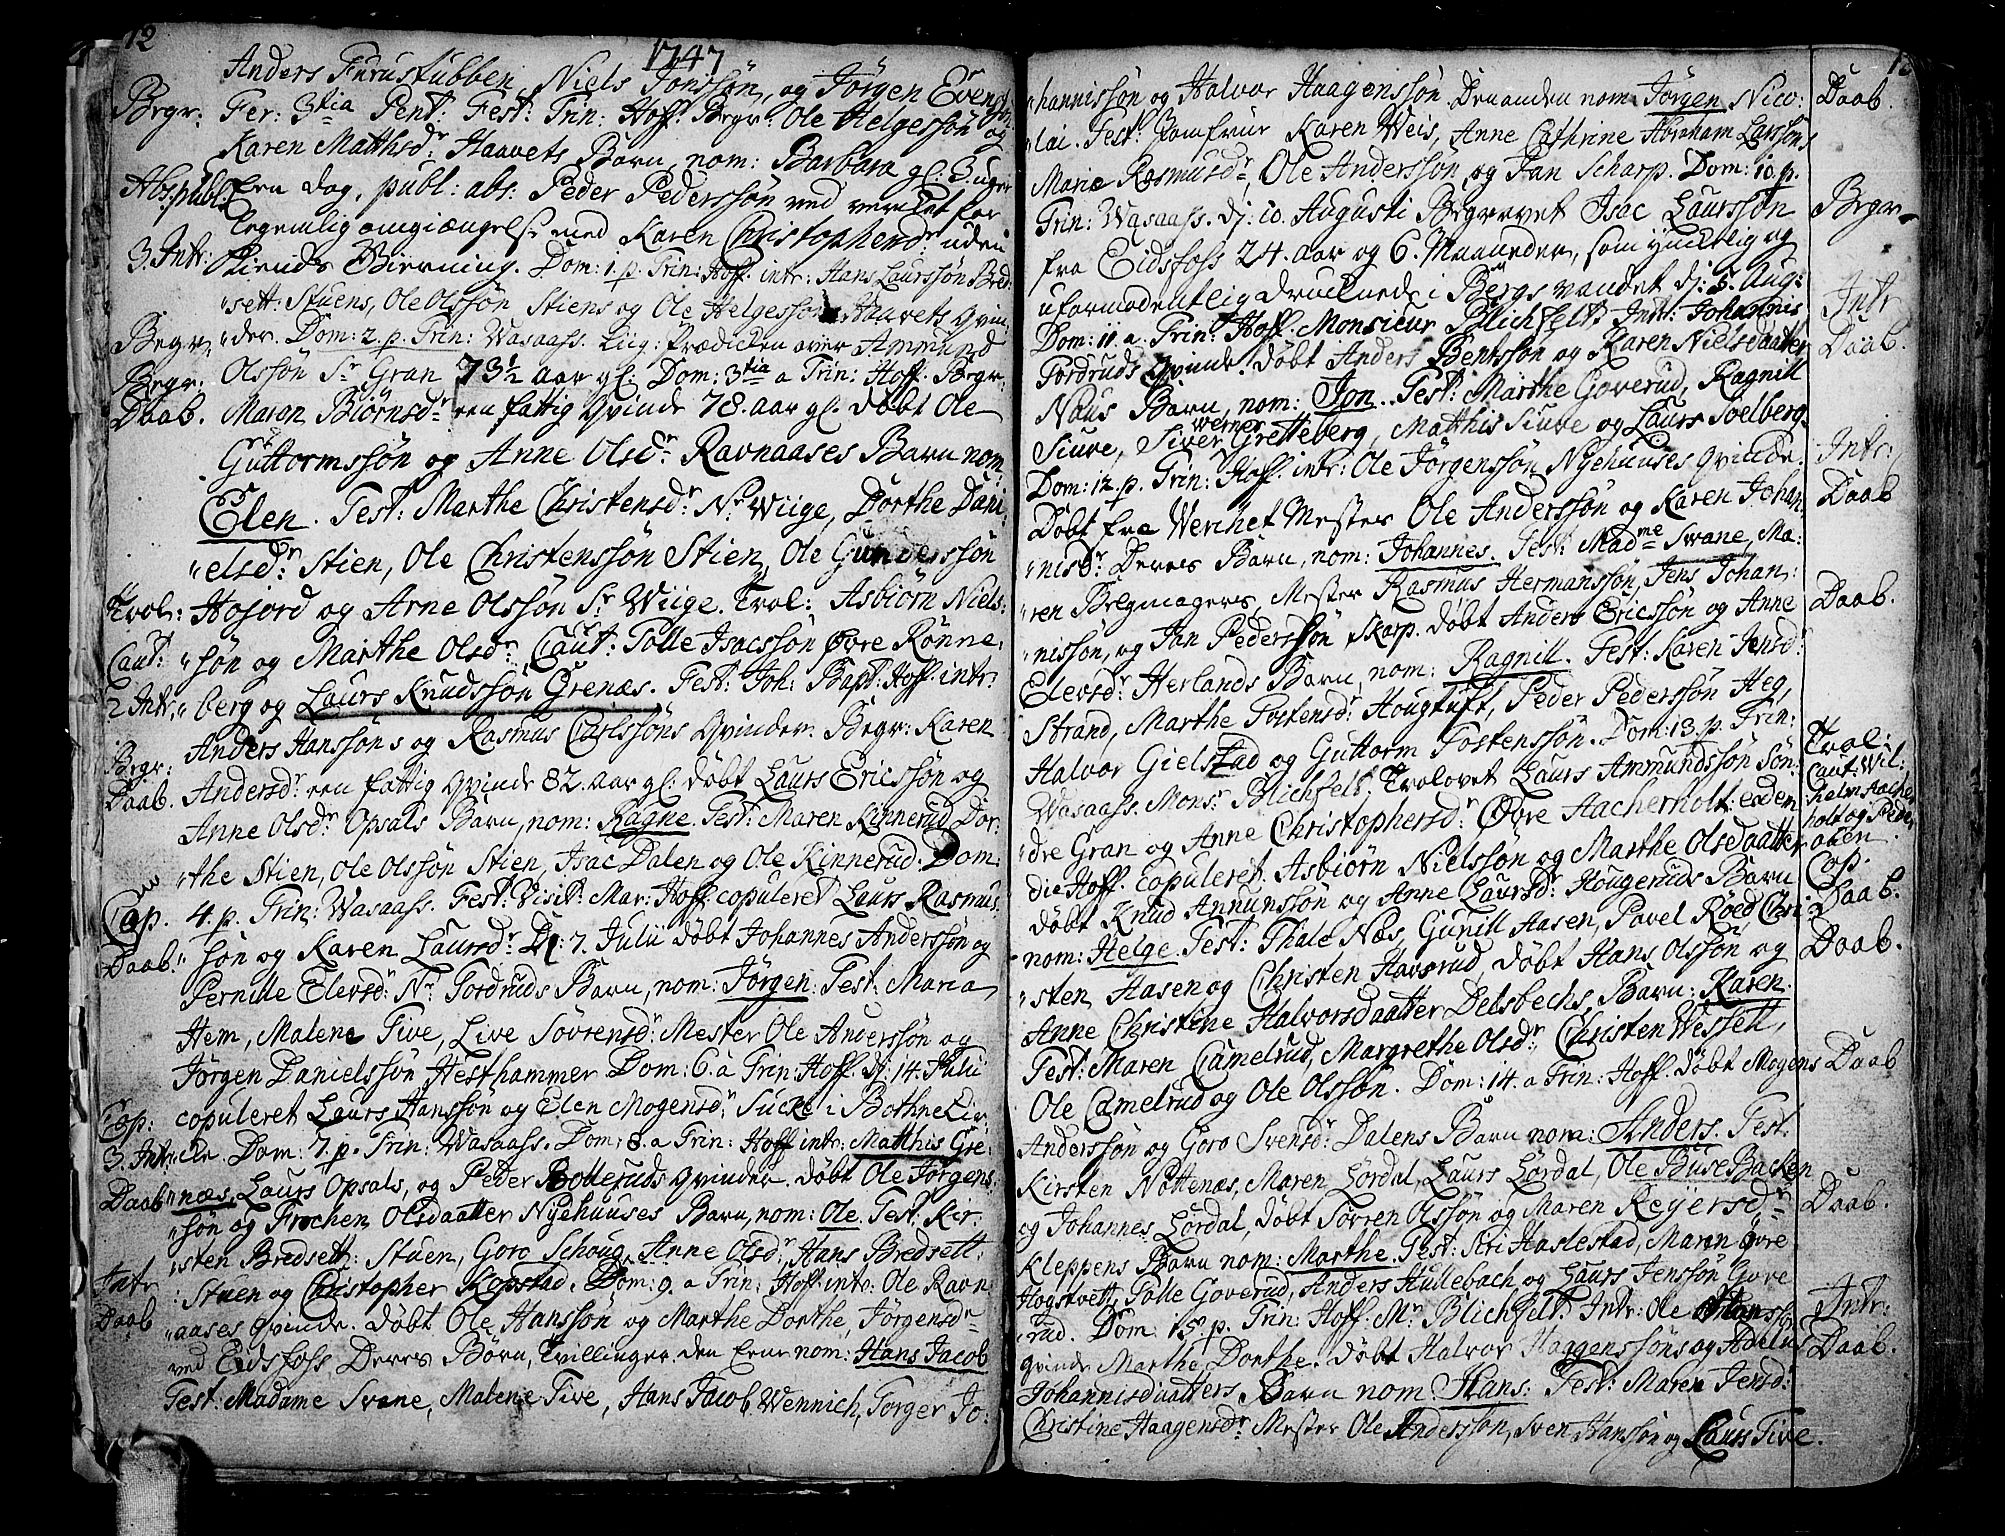 12
1747
Anders Furustubben, Niels Jonssøn, og Jørgen Evens
Begr: Fer: 3tia Pent: Fest: Trin: Hoff. Begr. Ole Helgessøn og
Karen Matthsdr Haavets Barn, nom: Barbara gl: 3 uger
Abs: publ: Een dag, publ: abs: Peder Pederssøn ved verket for
legemlig omgiængelse med Karen Christophersdr uden
3. Intr: Dom: 1. p. Trin: Hoff. intr: Hans Laurssøn Bred
sett: Stuens, Ole Olssøn Stiens og Ole Helgessøn Haavets qvin
Begr. der. Dom: 2. p. Trin: Wasaass. Liig: Prædicken over Ammund
Begr: Olssøn Sr Gran 73½ aar gl. Dom: 3tia a Trin: Hoff. Begr:
Daab. Maren Biørnsdr een fattig qvinde 78. aar gl. døbt Ole
Guttormssøn og Anne Olsdr Ravnaases Barn nom:
Elen. Test: Marthe Christensdr Nr Wiige, Dorthe Dani
elsdr Stien, Ole Christenssøn Stien, Ole Gunderssøn
Trol: Hojord og Arne Olssøn Sr Wiige. Trol: Asbiørn Niels
Caut: søn og Marthe Olsdr Caut: Tolle Isacssøn Øvre Rønne
2 Intr. berg og Laurs Knudssøn Grenæs. Fest: Joh: Bapt: Hoff. intr:
Anders Hanssøns og Rasmus Carlssøns Qvinder. Begr: Karen
Begr:
Daab. Andersdr een fattig qvinde 82. aar gl: døbt Laurs Ericssøn og
Anne Olsdr Opsals Barn, nom: Ragne. Test: Maren Kinnerud, Dor
the Stien, Ole Olssøn Stien, Isac Dalen og Ole Kinnerud. Dom:
Cop. 4. p. Trin: Wasaass. Fest: Visit: Mar: Hoff: copuleret Laurs Rasmus
Daab. søn og Karen Laursdr D: 7. Julii døbt Johannes Anderssøn og
Pernille Elevsdr Nr Tordruds Barn, nom: Jørgen. Test: Maria
Hem, Malene Tive, Live Sørrensdr Mester Ole Anderssøn og
Jørgen Danielssøn Hesthammer Dom: 6. a Trin: Hoff. dj: 14. Julii
Cop: copuleret Laurs Hanssøn og Elen Mogensdr Sucke i Bothne
3. Intr: Dom: 7. p. Trin: Wasaass. Dom: 8. a Trin: Hoff intr: Matthis Gre
Daab næs, Laurs Opsals, og Peder Botteruds qvinder. døbt Ole Jørgens
søn og Frochen Olsdaatter Nyehuuses Barn, nom: Ole. Test: Kir
sten Bredsett: Stuen, Goro Schoug, Anne Olsdr, Hans Bredsett:
Intr Stuen og Christopher Kopstad. Dom: 9. a Trin: Hoff: intr: Ole Ravn
Daab aases qvinde. døbt Ole Hanssøn og Marthe Dorthe Jørgensdr
ved Eidsfoss Deres Børn, Tvillinger. den eene nom: Hans Jacob
Test: Madame Svane, Malene Tive, Hans Jacob Wennich, Torger Jo:
hannissøn og Halvor Haagenssøn. Den anden nom: Jørgen Nico: Daab.
lai. Test: Jomfrue Karen Weis, Anne Cathrine Abraham Larssøns
Marie Rasmusdr, Ole Anderssøn, og Jan Scharp. Dom: 10. p.
Trin: Wasaass. dj: 10. Augusti Begravet Isac Laurssøn Begr.
fra Eidsfoss 24. aar og 6. Maaneder, som ynckelig og
uformodentlig druknede i Bergs vandet dj: 5. Aug:
Dom: 11. a. Trin: Hoff. Monsieur Blichfelt. Intr: Johannis Intr
Tordruds Qvinde. døbt Anders Bentssøn og Karen Nielsdaatter Daab.
Naus Barn, nom: Jon. Test: Marthe Goverud, Ragnill
Siuve, Siver Werner Gretteberg, Matthis Siuve og Laurs Solberg.
Dom: 12. p. Trin: Hoff. intr: Ole Jørgenssøn Nyehuuses qvinde. Intr:
Døbt fra Werchet Mester Ole Anderssøn og Karen Johan Daab
nisdr Deres Barn, nom: Johannes. Test: Madme Svane, Ma:
ren Belgmagers, Mester Rasmus Hermanssøn, Jens Johan:
nissøn, og Jan Pederssøn Skarp. døbt Anders Ericssøn og Anne Daab.
Elevsdr Herlands Barn, nom: Ragnill. Test: Karen Jensdr
Strand, Marthe Tostensdr Hougtuft, Peder Pederssøn Heg,
Halvor Gielstad og Guttorm Tostenssøn. Dom: 13. p. Trin:
Wasaass. Monsr Blichfelt. Trolovet Laurs Ammundssøn Søn: Trol: Caut: Wil:
dre Gran og Anne Christophersdr Øvre Aacherholt: helm Aacher
die Hoff. copuleret Asbiørn Nielssøn og Marthe Olsdaatter Cop.
døbt Knud Annunssøn og Anne Laursdr Hougeruds Barn Daab.
nom: Helge. Test: Thale Næs, Gunill Aasen, Pavel Røed, Chri
sten Aasen og Christen Havsrud. døbt Hans Olssøn og Daab.
Anne Christine Halvorsdaatter Delsbechs Barn: Karen.
Test: Maren Camelrud, Margrethe Olsdr, Christen Wessell,
Ole Camelrud og Ole Olssøn. Dom: 14. a Trin: Hoff. døbt Mogens Daab
Anderssøn og Goro Svensdr Dalens Barn nom: Anders. Test:
Kirsten Nøttenæs, Maren Lørdal, Laurs Lørdal, Ole Buse Backen
og Johannes Lørdal, døbt Sørren Olssøn og Maren Reyersdr Daab.
Kleppens Barn nom: Marthe. Test: Siri Haslestad, Maren Øvre
Hogstvett, Tolle Goverud, Anders Hullebach og Laurs Jenssøn Gove
rud. Dom: 15. p. Trin: Hoff. Mr Blichfelt. Intr: Ole Hanssøns Intr:
qvinde Marthe Dorthe. døbt Halvor Haagenssøns og Daab.
Johannisdaatters Barn nom: Hans. Test: Maren Jensdr
Christine Haagensdr Mester Ole Anderssøn, Sven Hanssøn og Laurs Tive.